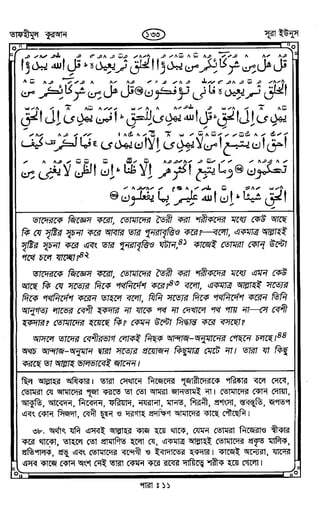 তাফহীমুল কুরআন
১৩৩
সূরা ইউনুস
قُلْ هَلْ مِنْ شُرَكَائِكُمْ مَنْ يَبْدَؤُا
الْخَلْقَ ثُمَّ يُعِيدُهُ قُلِ اللهُ يَبْدَؤُا
الْخَلْقَ ثُمَّ يُعِيدُهُ فَأَنَّى تُؤْفَكُونَ قُلْ هَلْ مِنْ شُرَكَائِكُمْ مَنْ
يَهْدِي إِلَى الْحَقِّ قُلِ اللهُ يَهْدِي لِلْحَقِّ أَفَمَنْ يَهْدِي إِلَى الْحَقِّ
أَحَقُّ أَنْ يُتَّبَعَ أَمَّنْ لَا يَهِدِّي إِلَّا أَنْ يُهْدَى فَمَا لَكُمْ كَيْفَ
تَحْكُمُونَ وَمَا يَتَّبِعُ أَكْثَرُهُمْ إِلَّا ظَنًّا إِنَّ الظَّنَّ لَا يُغْنِي مِنَ
الْحَقِّ شَيْئًا إِنَّ اللهَ عَلِيمٌ بِمَا يَفْعَلُونَ
তাদেরকে জিজ্ঞেস করো, তোমাদের তৈরী করা শরীকদের মধ্যে কেউ আছে
কি যে সৃষ্টির সূচনা করে আবার তার পুনরাবৃত্তিও করে?—বলো, একমাত্র আল্লাহই
সৃষ্টির সূচনা করে এবং তার পুনরাবৃত্তিও ঘটান,৪১ কাজেই তোমরা কোন্ উল্টো
পথে চলে যাচ্ছো?৪২
তাদেরকে জিজ্ঞেস করো, তোমাদের তৈরী করা শরীকদের মধ্যে এমন কেউ
আছে কি যে সত্যের দিকে পথনির্দেশ করে?৪৩ বলো, একমাত্র আল্লাহই সত্যের
দিকে পথনির্দেশ করেন তাহলে বলো, যিনি সত্যের দিকে পথনির্দেশ করেন তিনি
আনুগত্য লাভের বেশী হকদার না যাকে পথ না দেখালে পথ পায় না—সে বেশী
হকদার? তোমাদের হয়েছে কি? কেমন উল্টা সিদ্ধান্ত করে বসছো?
আসলে তাদের বেশীরভাগ লোকই নিছক আন্দাজ-অনুমানের পেছনে চলছে।৪৪
অথচ আন্দাজ-অনুমান দ্বারা সত্যের প্রয়োজন কিছুমাত্র মেটে না। তারা যা কিছু
করছে তা আল্লাহ ভালভাবেই জানেন।
ছিল আল্লাহর অধিকার। তারা সেখানে নিজেদের পূজারীদেরকে পরিষ্কার বলে দেবে,
তোমরা যে আমাদের পূজা করছে তা তো আমরা জানতামই না। তোমাদের কোন দোয়া,
আকুতি, আবেদন, নিবেদন, ফরিয়াদ, নযরানা, মানত, শিরনী, প্রশংসা, স্তবস্তুতি, জপতপ
এবং কোন সিজদা, বেদী চুম্বন ও দরগাহ প্রদক্ষিণ আমাদের কাছে পৌঁছেনি।
৩৮. অর্থাৎ যদি এসবই আল্লাহর কাজ হয়ে থাকে, যেমন তোমরা নিজেরাও স্বীকার
করে থাকো, তাহলে তো প্রমাণিত হলো যে, একমাত্র আল্লাহই তোমাদের প্রকৃত মালিক,
প্রতিপালক, প্রভু এবং তোমাদের বন্দেগী ও ইবাদাতের হকদার। কাজেই অন্যেরা, যাদের
এসব কাজে কোন অংশ নেই তারা কেমন করে রবের দায়িত্বে শরীক হয়ে গেলো।
পারা : ১১